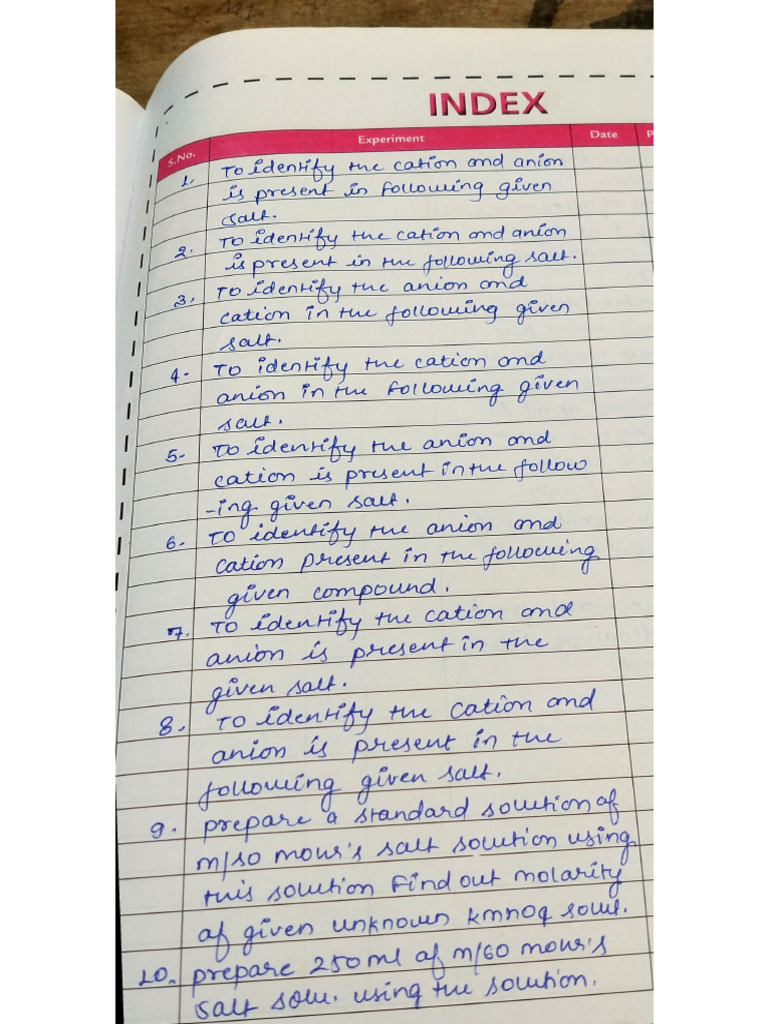 INDEX
S.No. Experiment Date P
1. To identify the cation and anion
is present in following given
salt.
2. To identify the cation and anion
is present in the following salt.
3. To identify the anion and
cation in the following given
salt.
4- To identify the cation and
anion in the following given
salt.
5- To identify the anion and
cation is present in the follow
-ing given salt.
6- To identify the anion and
cation present in the following
given compound.
7. To identify the cation and
anion is present in the
given salt.
8. To identify the cation and
anion is present in the
following given salt.
9. prepare a standard solution of
m/50 mour's salt solution using
this solution Find out molarity
of given unknown kmno4 solut.
10. prepare 250ml of m/60 mour's
salt solu. using the solution.